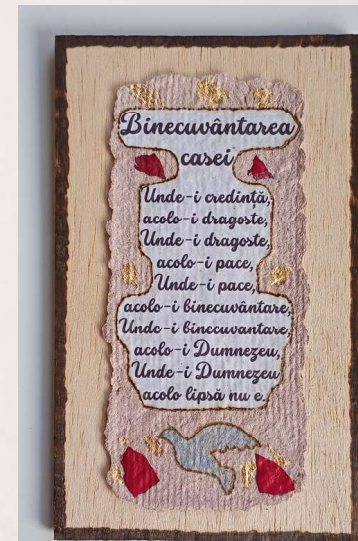 Binecuvântarea
casei
Unde-i credință,
acolo-i dragoste,
Unde-i dragoste,
acolo-i pace,
Unde-i pace,
acolo-i binecuvântare,
Unde-i binecuvantare,
acolo-i Dumnezeu,
Unde-i Dumnezeu
acolo lipsă nu e.